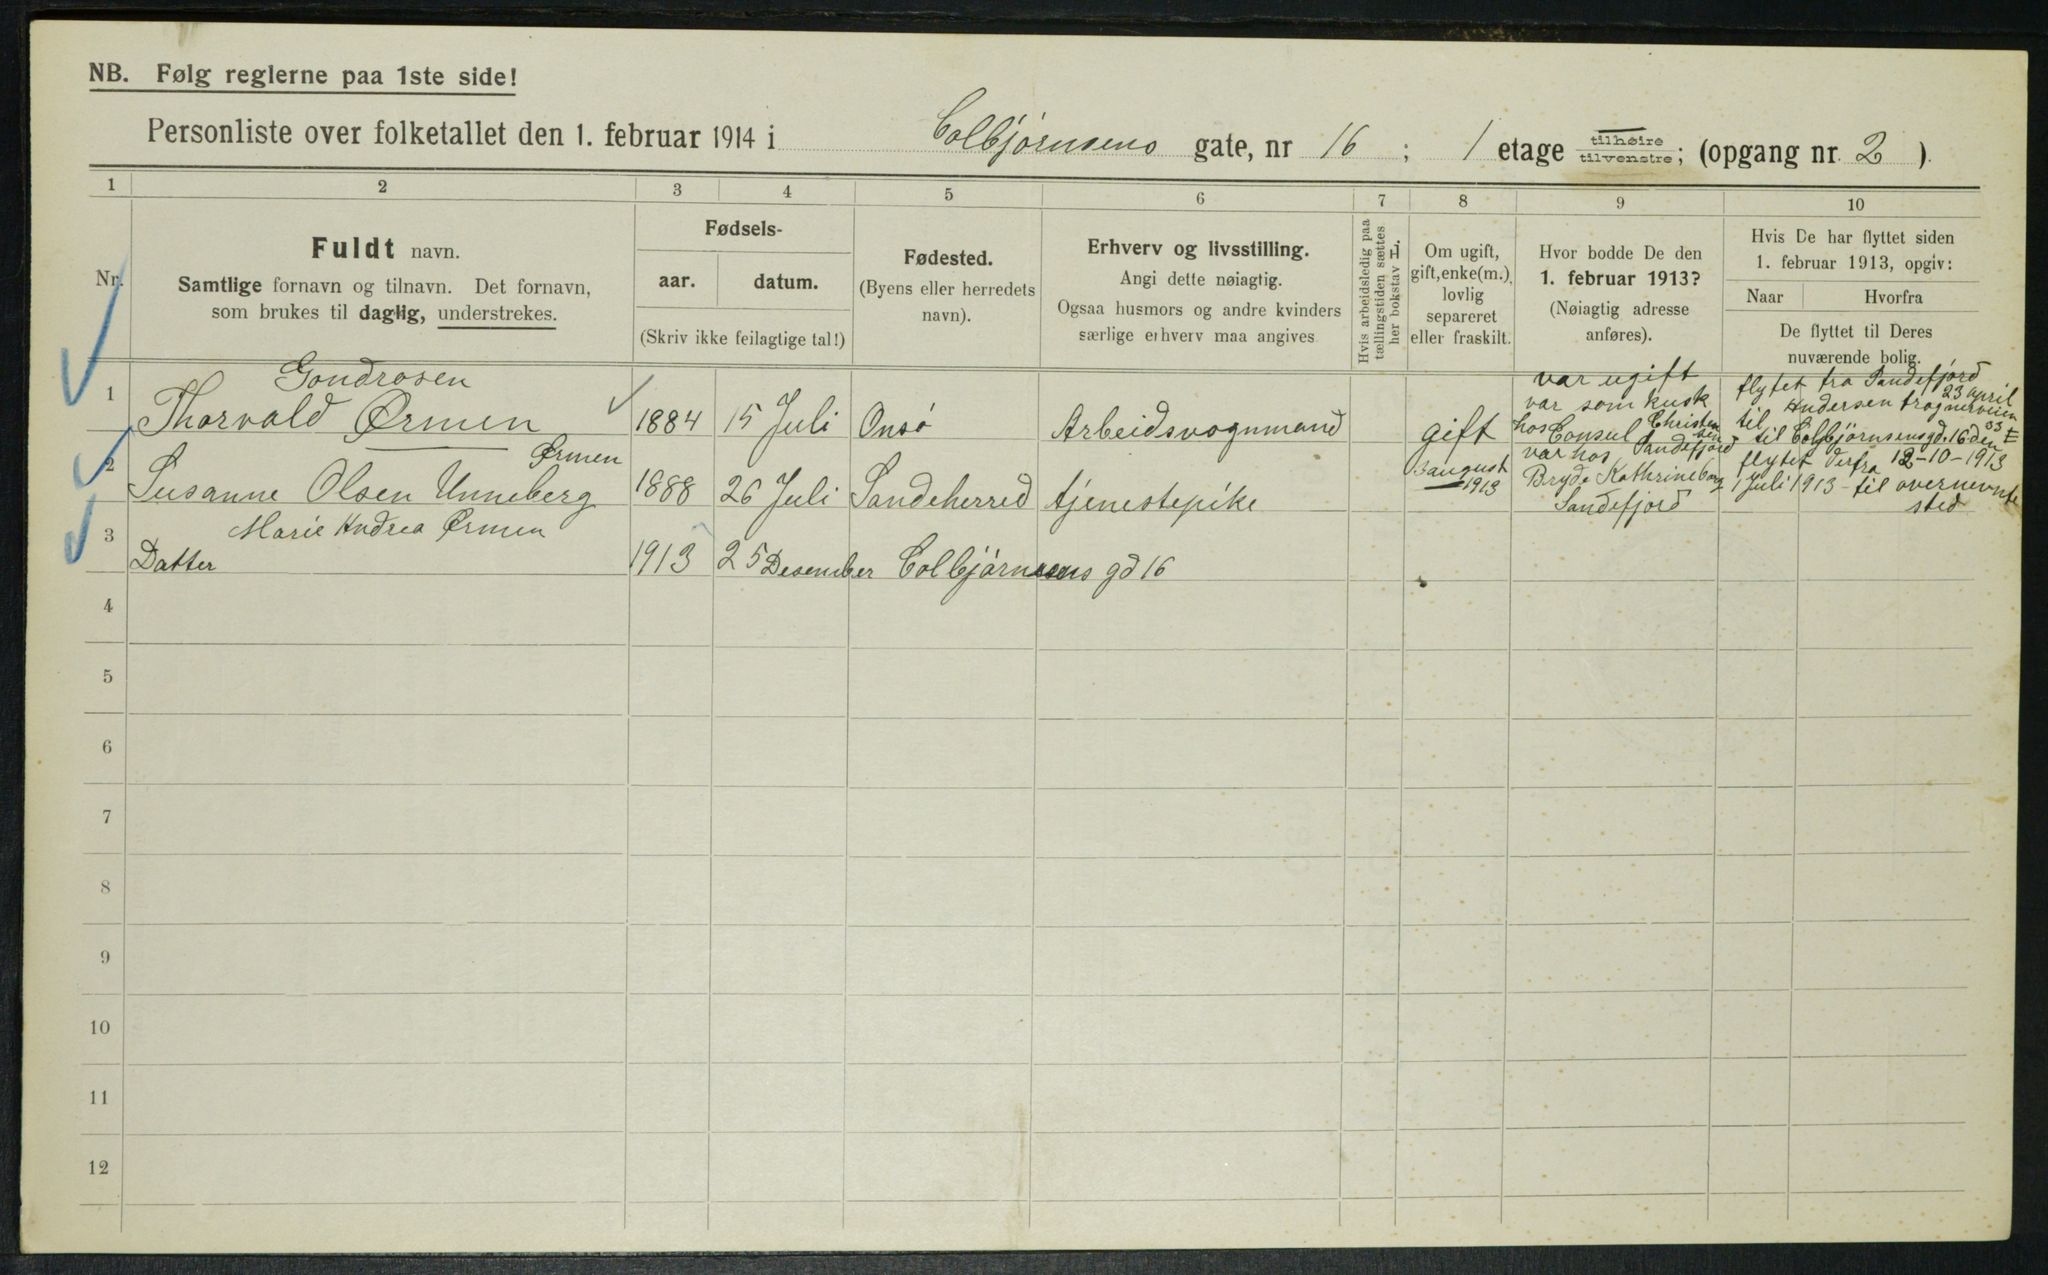 NB. Følg reglerne paa 1ste side!
Personliste over folketallet den 1. februar 1914 i Colbjørnsens gate, nr 16 ; 1 etage tilhøire tilvenstre; (opgang nr. 2 ).
1 2 3 4 5 6 7 8 9 10
Nr.
Fuldt navn.
Samtlige fornavn og tilnavn. Det fornavn,
som brukes til daglig, understrekes.
Fødsels-
aar. datum.
(Skriv ikke feilagtige tal!)
Fødested.
(Byens eller herredets
navn).
Erhverv og livsstilling.
Angi dette nøiagtig.
Ogsaa husmors og andre kvinders
særlige erhverv maa angives
Hvis arbeidsledig paa
tællingstiden sættes
her bokstav L
Om ugift,
gift, enke(m.),
lovlig
separeret
eller fraskilt.
Hvor bodde De den
1. februar 1913?
(Nøiagtig adresse
anføres).
Hvis De har flyttet siden
1. februar 1913, opgiv:
Naar Hvorfra
De flyttet til Deres
nuværende bolig.
1 Gondrosen
Thorvald Ørmen 1884 15 Juli Onsø Arbeidsvognmand gift
var ugift
var som kusk
hos Consul Christensen
Sandefjord
flytet fra Sandefjord
23 april
til Andersen frognerveien
33
til Colbjørnsensgd. 16 den
12-10-1913
2 Ørmen
Susanne Olsen Unneberg 1888 26 Juli Sandeherred tjenestepike
3 august
1913
var hos
Bryde Kathrineborg
Sandefjord
flytet derfra
1 Juli 1913 til overnevnte
sted
3 Marie Andrea Ørmen
Datter 1913 25 Desember Colbjørnsens gd 16
4
5
6
7
8
9
10
11
12